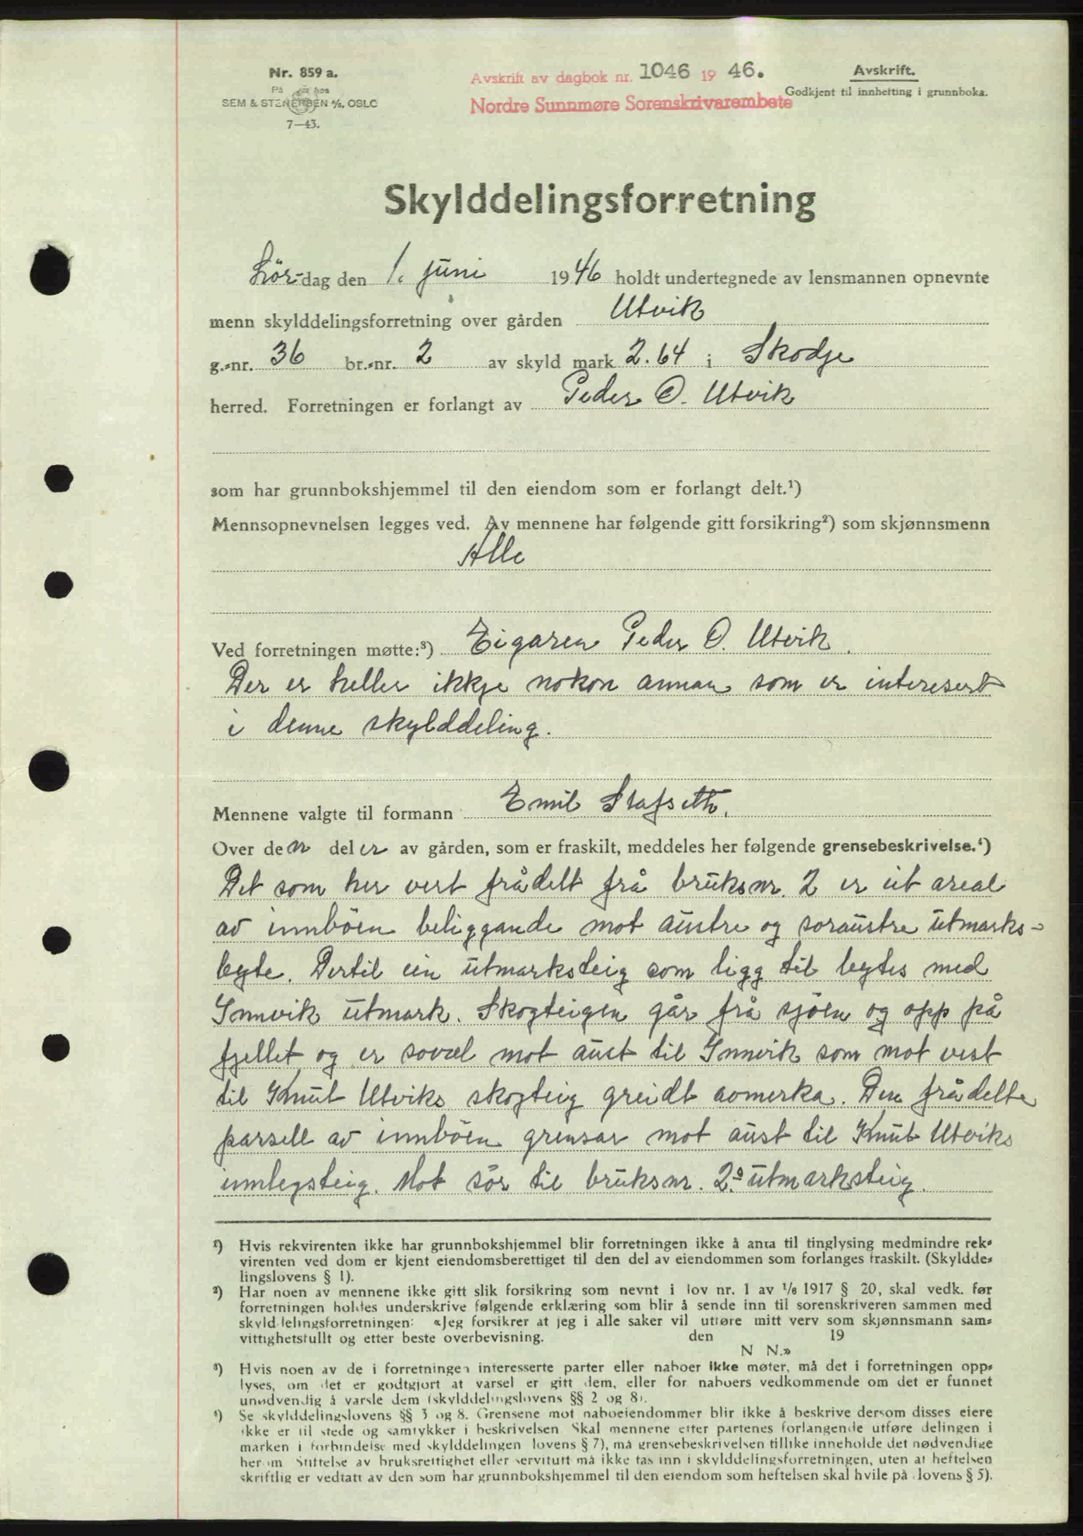 Nr. 859 a.
SEM & STENERSEN A/S, OSLO
7—43.
Avskrift av dagbok nr. 1046 19 46.
Nordre Sunnmøre Sorenskrivarembete
Avskrift.
Godkjent til innhefting i grunnboka.
Skylddelingsforretning
Lørdag den 1. juni 1946 holdt undertegnede av lensmannen opnevnte
menn skylddelingsforretning over gården Utvik
g.-nr. 36 br.-nr. 2 av skyld mark 2.64 i Skodje
herred. Forretningen er forlangt av Peder O. Utvik
som har grunnbokshjemmel til den eiendom som er forlangt delt.¹)
Mennsopnevnelsen legges ved. Av mennene har følgende gitt forsikring²) som skjønnsmenn
Alle
Ved forretningen møtte:³) Eigaren Peder O. Utvik.
Der er heller ikkje nokon annan som er interesert
i denne skylddeling.
Mennene valgte til formann Emil Stafseth.
Over den del er av gården, som er fraskilt, meddeles her følgende grensebeskrivelse.⁴)
Det som her vert frådelt frå bruksnr. 2 er eit areal
av innbøen beliggande mot austre og soraustre utmarks-
legte. Dertil ein utmarksteig som ligg til legtes med
Innvik utmark. Skogteigen går frå sjøen og opp på
fjellet og er soval mot aust til Innvik som mot vest
til Knut Utviks skogteig greidt avmerka. Den frådelte
parsell av innbøen grensar mot aust til Knut Utviks
innlegsteig. Mot sör til bruksnr. 2s utmarksteig.
¹) Hvis rekvirenten ikke har grunnbokshjemmel blir forretningen ikke å anta til tinglysing medmindre rek-
virenten ved dom er kjent eiendomsberettiget til den del av eiendommen som forlanges fraskilt. (Skyldde-
lingslovens § 1).
²) Har noen av mennene ikke gitt slik forsikring som nevnt i lov nr. 1 av 1/6 1917 § 20, skal vedk. før
forretningen holdes underskrive følgende erklæring som blir å sende inn til sorenskriveren sammen med
skylddelingsforretningen: «Jeg forsikrer at jeg i alle saker vil utføre mitt verv som skjønnsmann sam-
vittighetsfullt og etter beste overbevisning. den 19
N N.»
³) Hvis noen av de i forretningen interesserte parter eller naboer ikke møter, må det i forretningen opp-
lyses, om det er godtgjort at varsel er gitt dem, eller for naboers vedkommende om det er funnet
unødvendig å varsle dem (skylddelingslovens §§ 2 og 8).
⁴) Se skylddelingslovens §§ 3 og 8. Grensene mot naboeiendommer blir ikke å beskrive dersom disses eiere
ikke er til stede og samtykker i beskrivelsen Skal mennene etter partenes forlangende utføre delingen i
marken i forbindelse med skylddelingen lovens § 7), må grensebeskrivelsen tillike inneholde det nødvendige
her om Stiftelse av bruksrettighet eller servitutt må ikke tas inn i skylddelingsforretningen, uten at heftelsen
skriftlig er vedtatt av den som har grunnbokshjemmel til den eiendom som heftelsen skal hvile på lovens § 5).